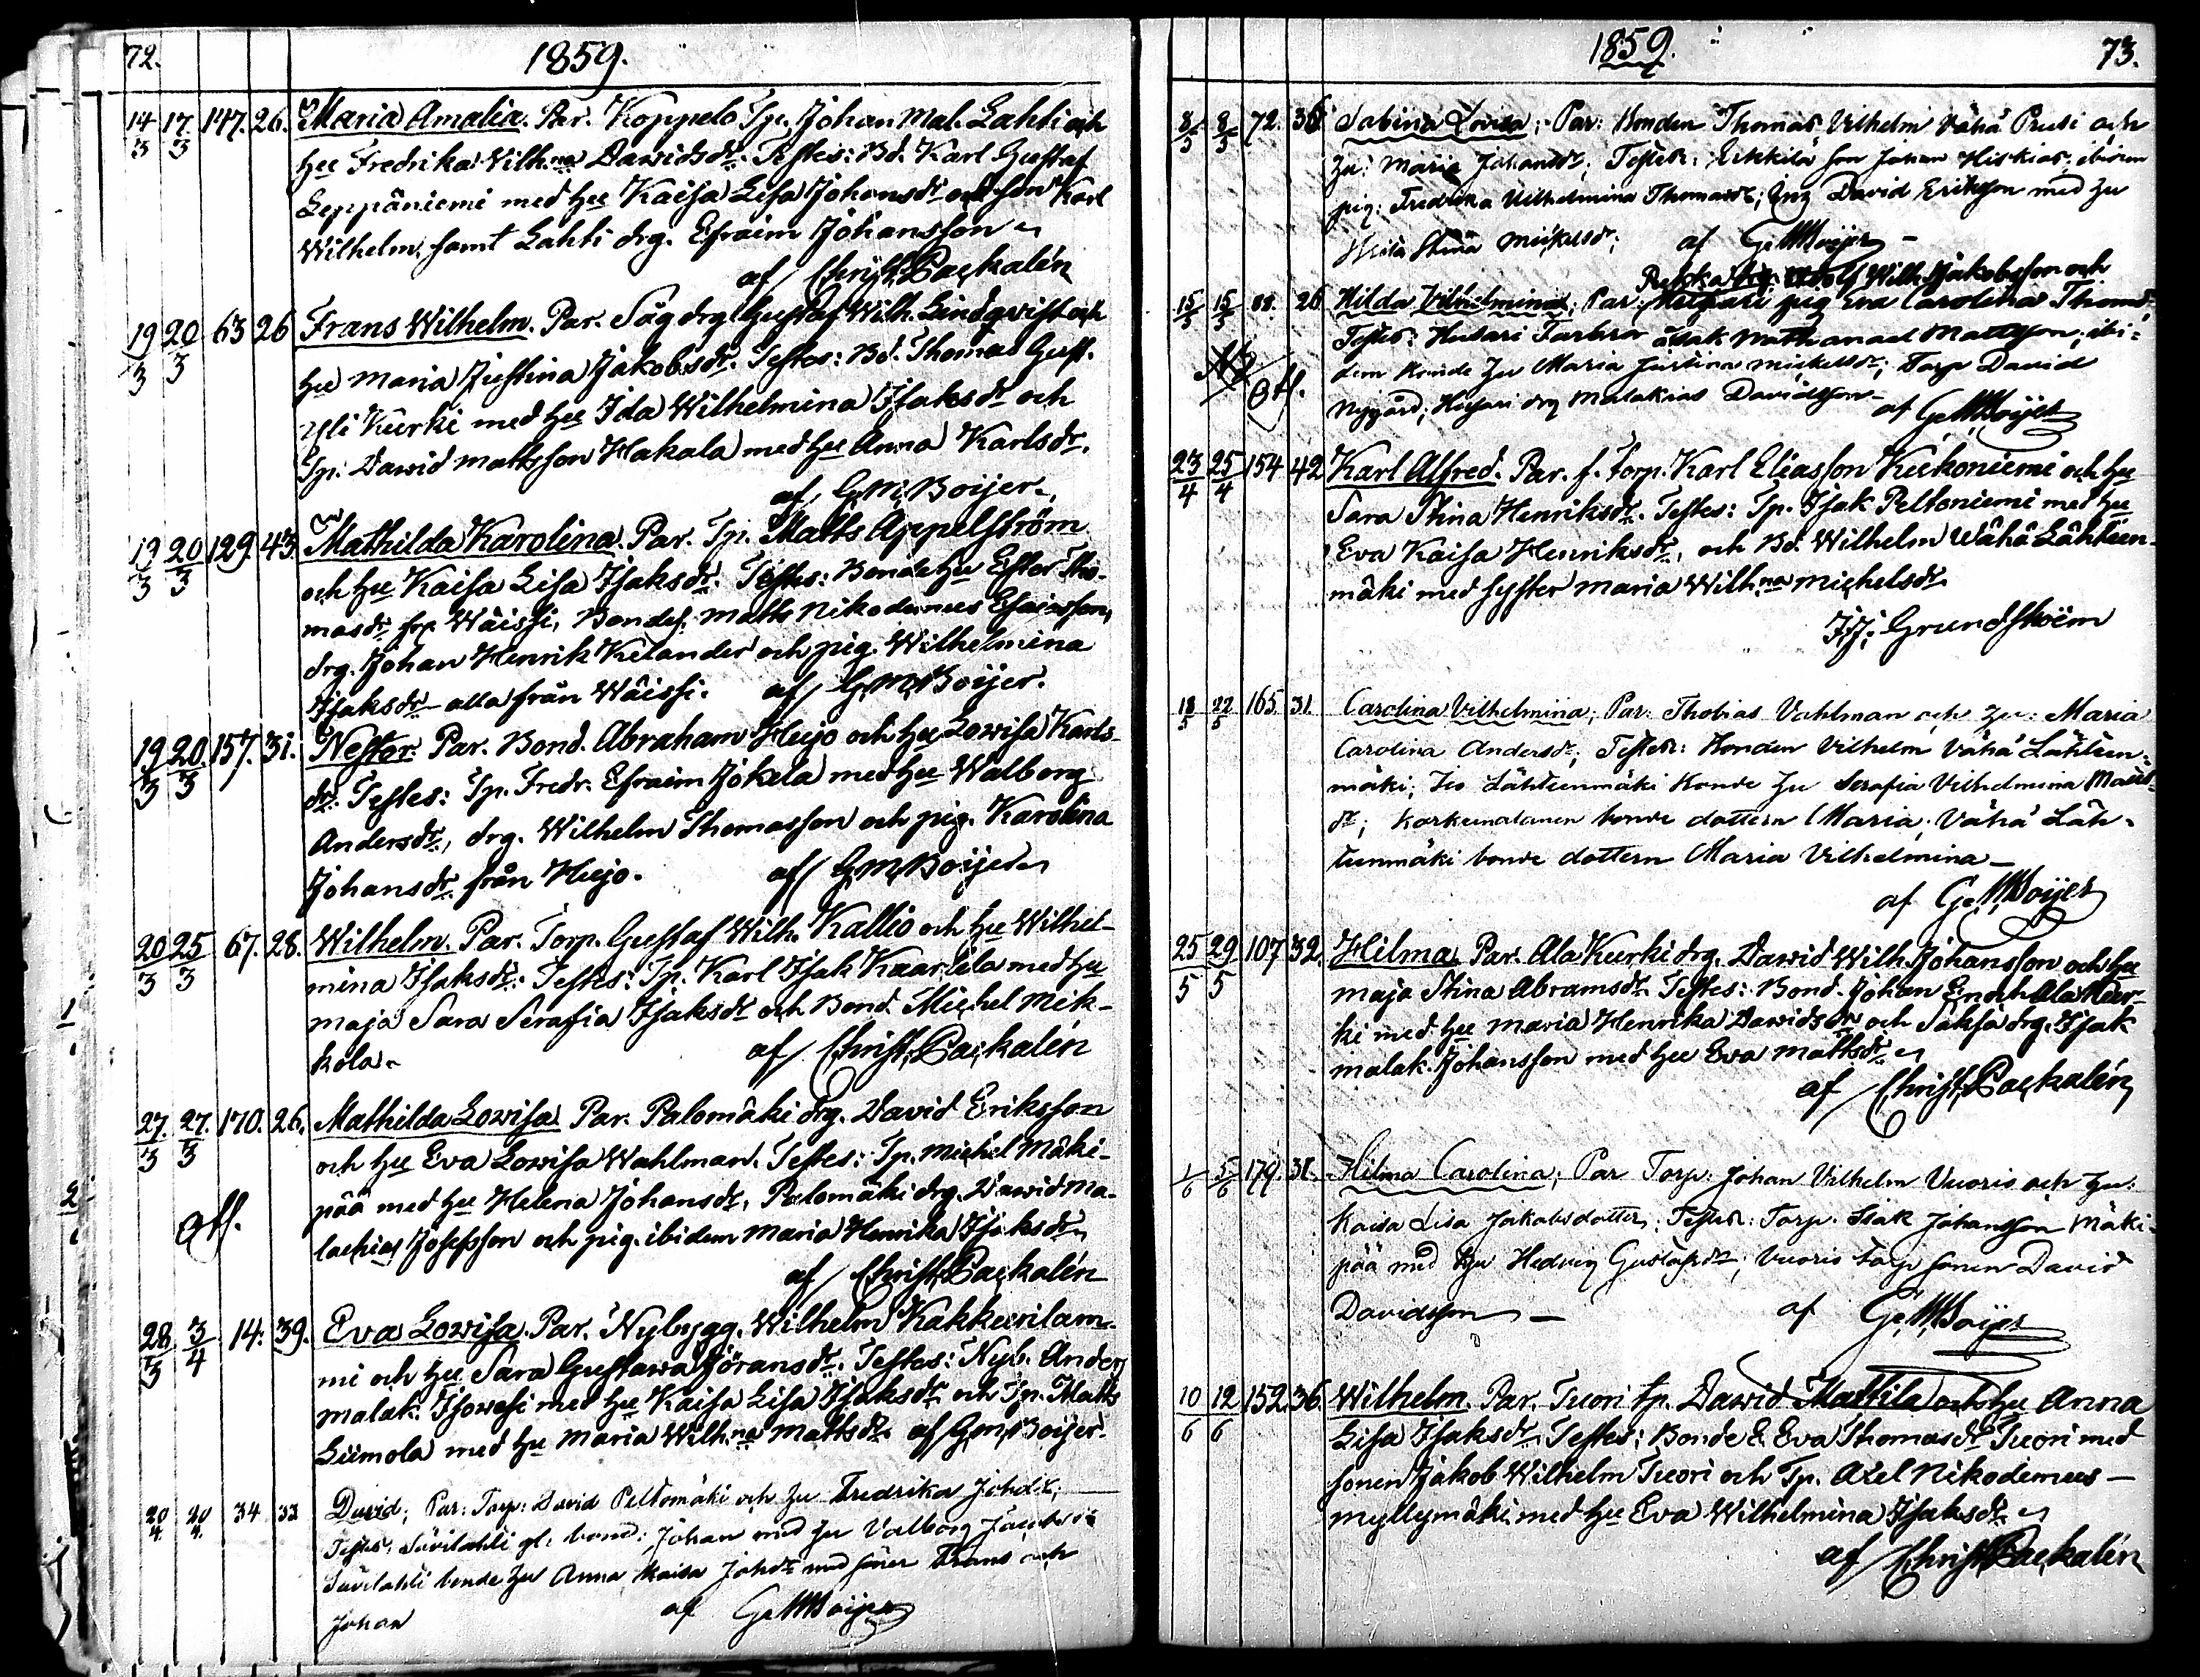 72.
1859.
14/3 17/3 147. 26. Maria Amalia. Par. Koppelo Tp. Johan Mal. Lahti och
hu Fredrika Wilh:na Dawidsdr. Testes: Bd. Karl Gustaf
Leppäniemi med hu Kaisa Lisa Johansdr och son Karl
Wilhelm, samt Lahti drg. Efraim Johansson
af Christ. Packalén
19/3 20/3 63 26 Frans Wilhelm. Par. Såg drg Gustaf Wilh. Lindqwist och
hu Maria Justina Jakobsdr. Testes: Bd. Thomas Gust.
Yli Kurki med hu Ida Wilhelmina Isaksdr och
Tp. Dawid Mattsson Hakala med hu Anna Karlsdr.
af G.M. Boijer.
19/3 20/3 129. 43. Mathilda Karolina. Par. Tp. Matts Appelström
och hu Kaisa Lisa Isaksdr. Testes: Bonde hu Ester Tho-
masdr frn Wäissi, Bondes. Matts Nikodemus Esaiasson,
drg. Johan Henrik Kelander och pig. Wilhelmina
Isaksdr alla från Wäissi. af G.M. Boijer.
19/3 20/3 157. 31. Nestor. Par. Bond. Abraham Hujo och hu Lowisa Karls-
dr. Testes: Tp. Fredr. Efraim Jokela med hu Walborg
Andersdr, drg. Wilhelm Thomasson och pig. Karolina
Johansdr från Hujo. af G.M. Boijer
20/3 25/3 67. 28. Wilhelm. Par. Torp. Gustaf Wilh. Kallio och hu Wilhel-
mina Isaksdr. Testes: Tp. Karl Isak Kaarlela med hu
Maja Sara Serafia Isaksdr och Bond. Michel Mik-
kola. af Christ. Packalén
27/3 27/3 170. 26. Mathilda Lowisa Par. Palomäki drg. David Eriksson
och hu Eva Lowisa Wahlman. Testes: Tp. Michel Mäki-
pää med hu Helena Johansdr, Palomäki drg. Dawid Ma-
lachias Josefsson och pig. ibidem Maria Henrika Isaksdr
af Christ. Packalén
28/3 3/4 14. 39. Eva Lowisa. Par. Nybygg. Wilhelm Kakkurilam-
mi och hu Sara Gustawa Jöransdr. Testes: Nyb. Anders
Malak. Isowesi med hu Kaisa Lisa Isaksdr och Tp. Matts
Liimola med hu Maria Wilh:na Mattsdr. af G.M. Boijer.
20/4 20/4 34 33 David; Par: Torp: David Peltomäki och hu Fredrika Johdr;
Testes: Suvilahti gl. bond: Johan med hu Valborg
Suvilahti bonde hu Anna Kaisa Johdr med söner Frans och
Johan af G.M. Boijer
1859.
73.
8/3 8/3 72. 36 Sabina Lovisa; Par: Bonden Thomas Vilhelm Vähä Pusi och
hu: Maria Johansdr; Testes: Erkkilä son Johan Hiskias; ibidem
pig: Fredrika Vilhelmina Thomasdr; Inh David Eriksson med hu
Stina Mickelsdr; af G.M. Boijer
Wilh. Jakobsson och
15/3 15/3 26 Hilda Vilhelmina; Par: pig Eva Carolina Thomdr,
Testes: Husari Isak Nathanael Mattsson; ibi-
dem hu Maria Justina Mickelsdr; Torp David
Nygård; Husari drg Malakias Davidsson af G.M. Boijer
23/4 25/4 154 42 Karl Alfred. Par. f. Torp. Karl Eliasson Kukoniemi och hu
Sara Stina Henriksdr. Testes: Tp. Isak Peltoniemi med hu
Eva Kaisa Henriksdr, och Bd. Wilhelm Wähä Lähteen-
mäki med syster Maria Wilh:na Michelsdr.
J.J. Grundström
18/5 22/5 165 31. Carolina Vilhelmina; Par: Thobias Vahlman och hu: Maria
Carolina Andersdr; Testes: Bonden Vilhelm Vähä Lähteen-
mäki; Iso Lähteenmäki bonde hu Serafia Vilhelmina
dr; bonde dottern Maria; Vähä Läh-
teenmäki bonde dottern Maria Vilhelmina
af G.M. Boijer
25/5 29/5 107 32. Hilma Par. Ala Kurki drg. Dawid Wilh. Johansson och hu
Maja Stina Abramsdr. Testes: Bond. Johan Enoch Ala Kur-
ki med hu Maria Henrika Dawidsdr och Saksa drg. Isak
Malak. Johansson med hu Eva Mattsdr
af Christ. Packalén
1/6 5/6 179. 31. Hilma Carolina; Par Torp: Johan Vilhelm Vuorio och hu:
Kaisa Lisa Jakobsdotter; Testes: Torp. Isak Johansson Mäki-
pää med hu Hedvig Gustafsdr; Vuorio torp sonen David
Davidsson af G.M. Boijer
10/6 12/6 152. 36. Wilhelm. Par. Tuori tp. Dawid Mattila och hu Anna
Lisa Isaksdr. Testes: Bonde E. Eva Thomasdr Tuori med
sonen Jakob Wilhelm Tuori och Tp. Axel Nikodemus
Myllymäki med hu Eva Wilhelmina Isaksdr
af Christ. Packalén